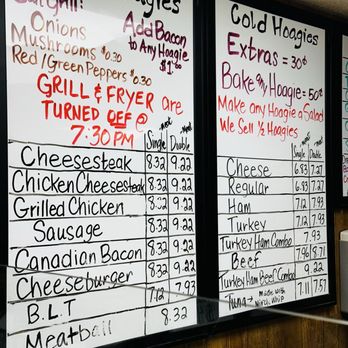 Onions
Mushrooms $0.30
Red/Green Peppers $0.30
Add Bacon
to Any Hoagie
$1.00
GRILL & FRYER are
TURNED OFF @
7:30PM
Single Double
Cheesesteak 8.32 9.22
Chicken Cheesesteak 8.32 9.22
Grilled Chicken 8.32 9.22
Sausage 8.32 9.22
Canadian Bacon 8.32 9.22
Cheeseburger 8.32 9.22
B.L.T 7.12 7.93
Meatball 8.32
Cold Hoagies
Extras = 30¢
Bake any Hoagie = 50¢
Make any Hoagie a Salad
We Sell ½ Hoagies
Single Double
Cheese 6.83 7.27
Regular 6.83 7.27
Ham 7.12 7.93
Turkey 7.12 7.93
Turkey Ham Combo 7.93
Beef 7.96 8.71
Turkey Ham Beef Combo 9.22
Tuna made with Mirch. Whip 7.11 7.57